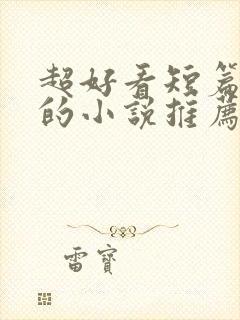 超好看短篇
的小說推薦
雷寶